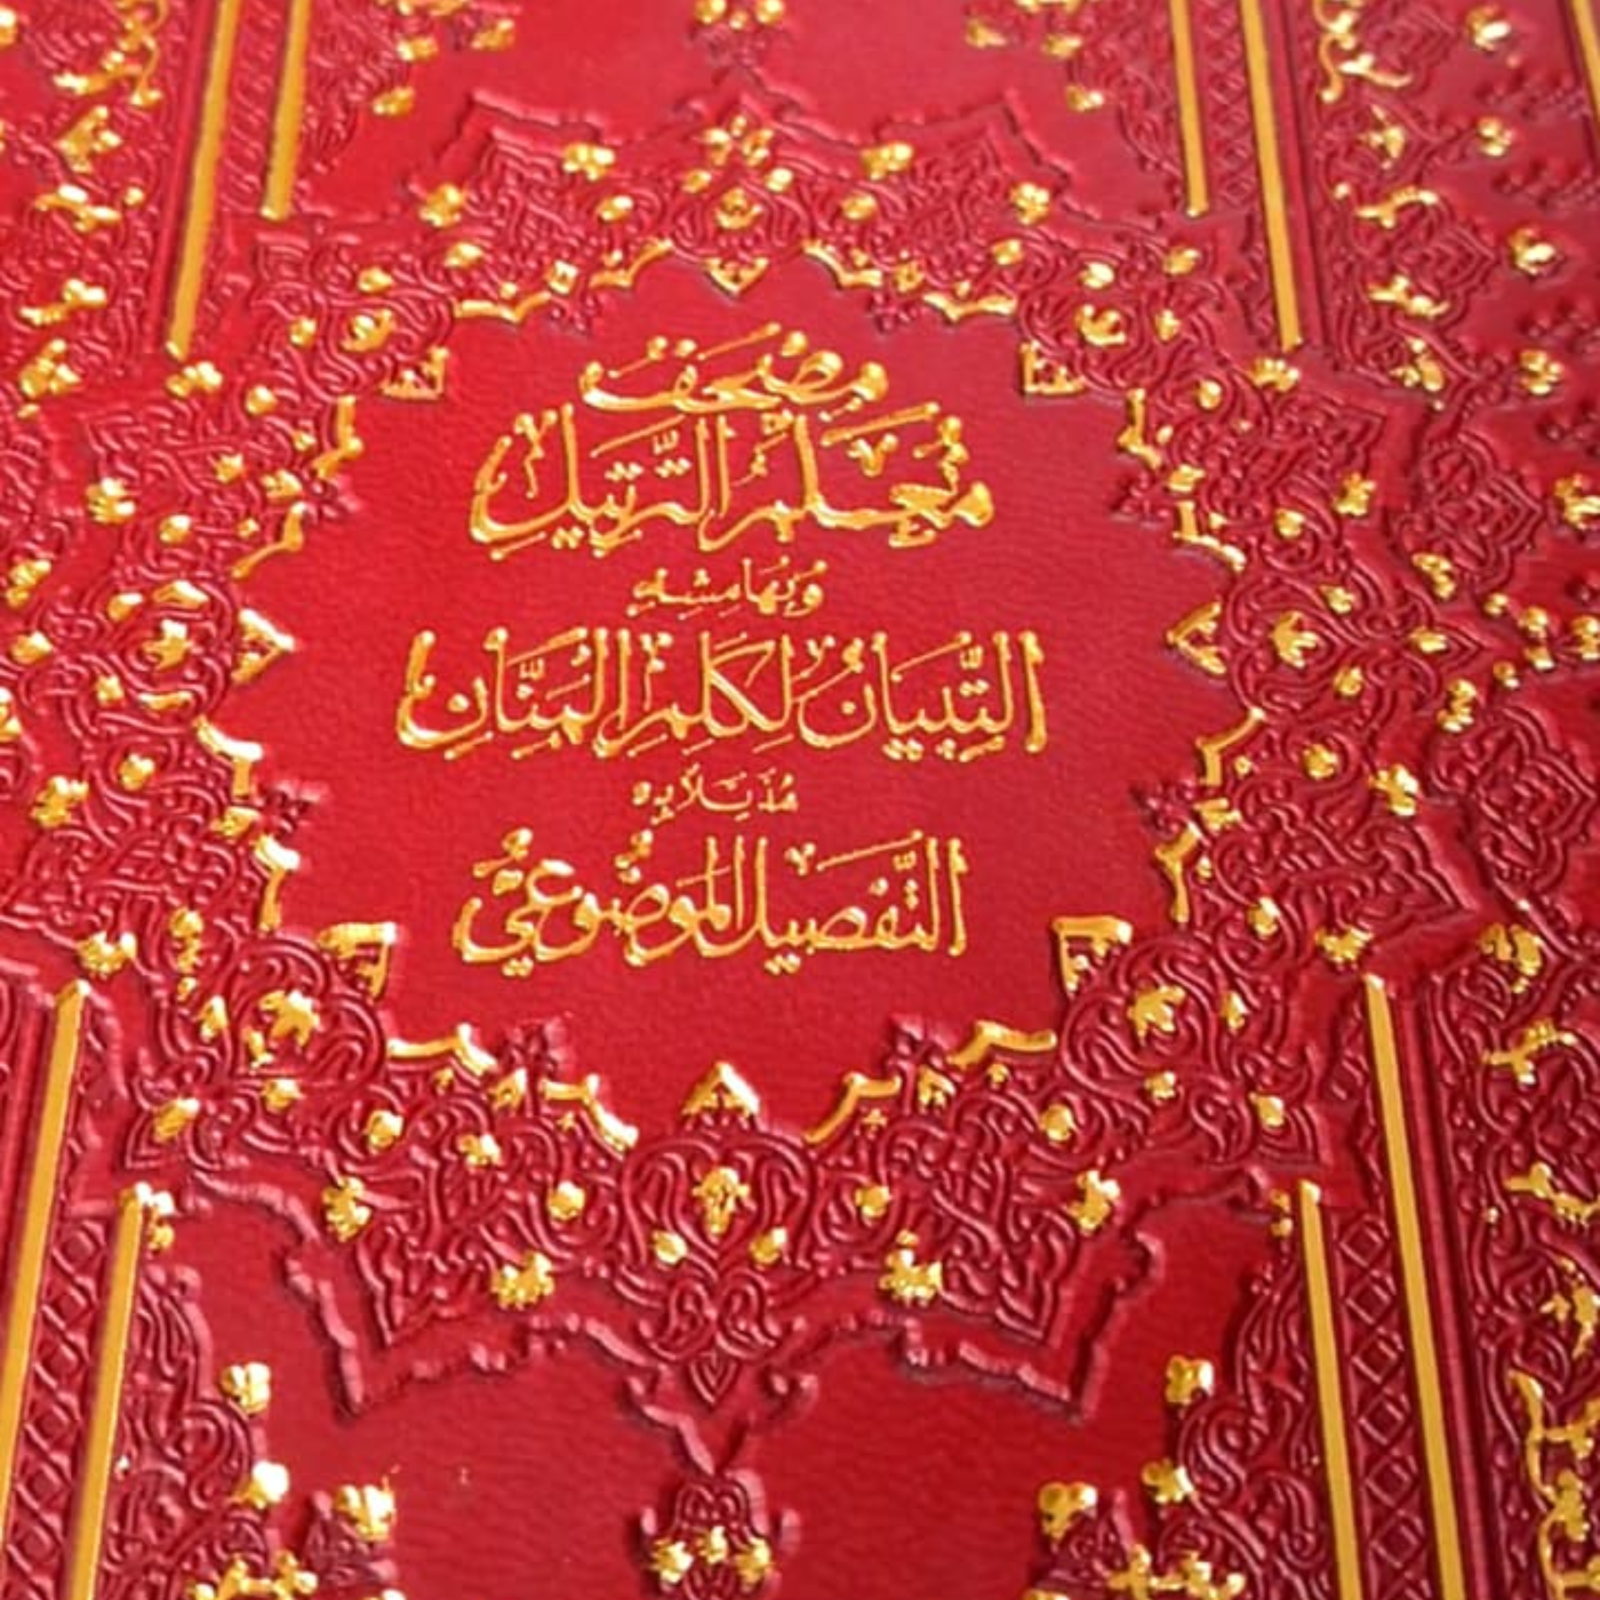 مصحف
معلم الترتيل
وبهامشه
التبيان لكلم المنان
مذيلا به
التفصيل الموضوعي